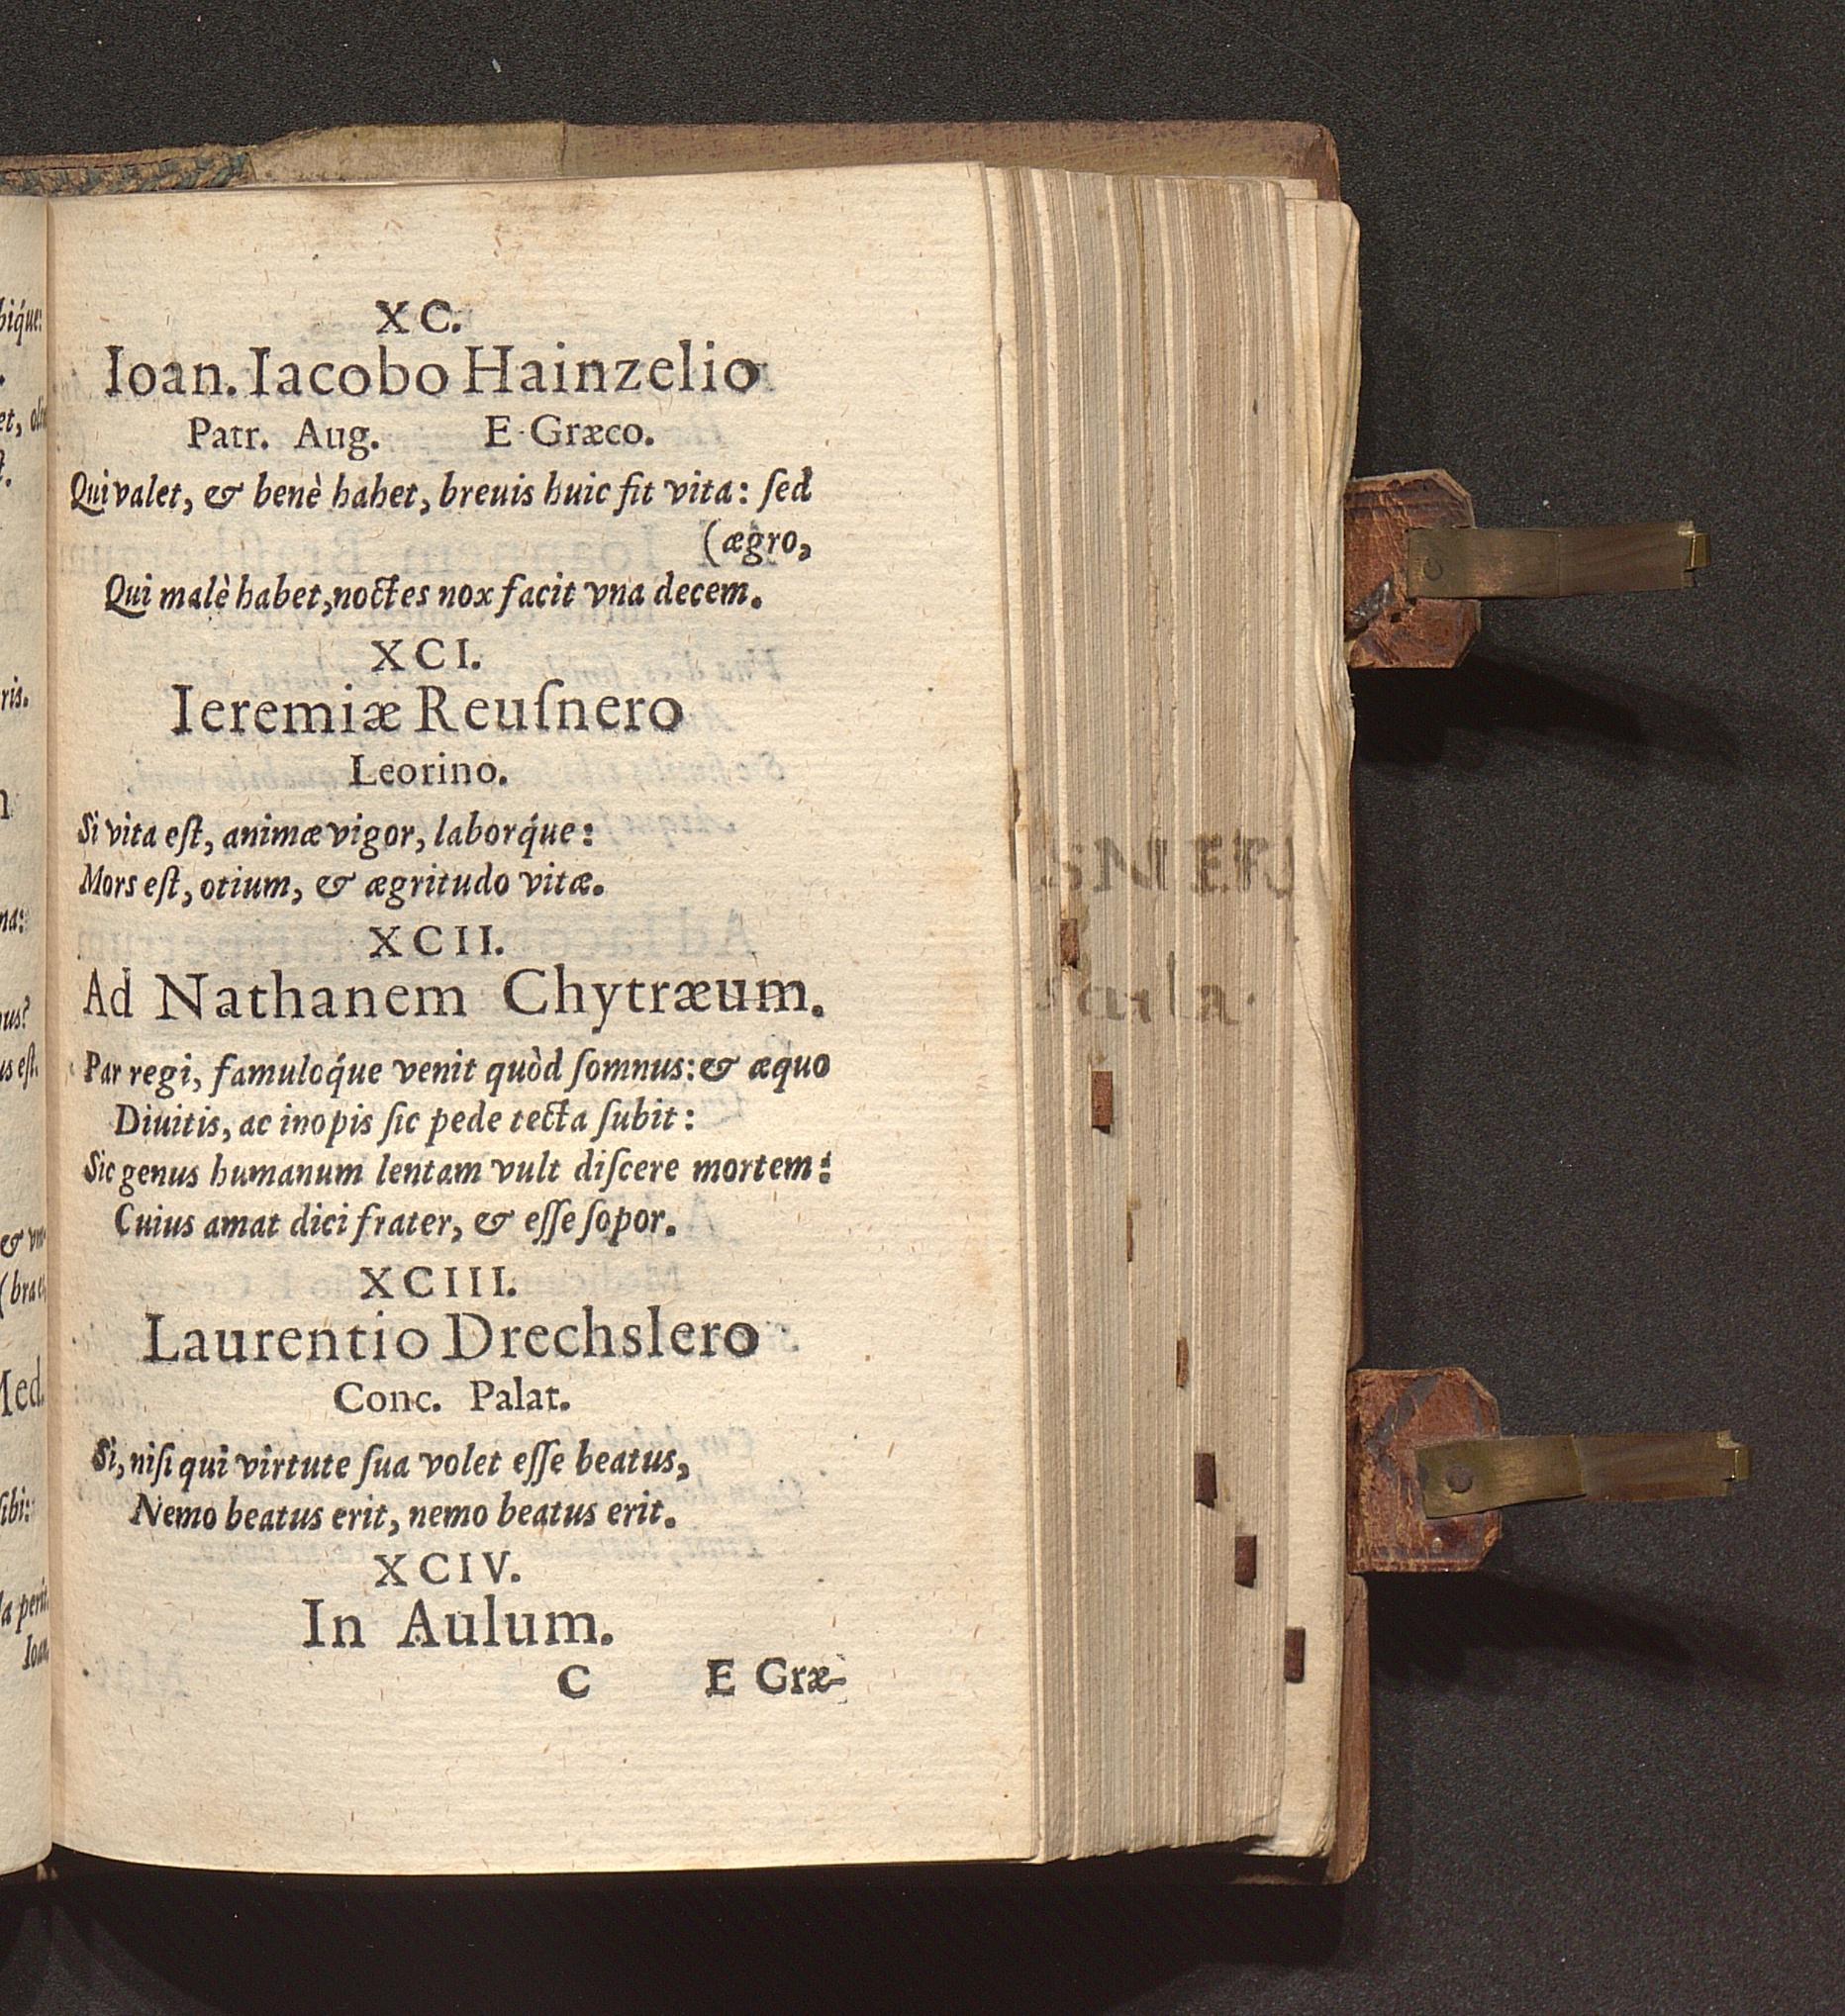 XC.
Ioan. Iacobo Hainzelio
Patr. Aug. E Græco.
Qui valet, & benè hahet, breuis huic fit vita: ſed
(ægro,
Qui malè habet, noctes nox facit vna decem.
XCI.
Ieremiæ Reuſnero
Leorino.
Si vita eſt, animæ vigor, laborq́ue:
Mors eſt, otium, & ægritudo vitæ.
XCII.
Ad Nathanem Chytræum.
Par regi, famuloq́ue venit quòd ſomnus: & æquo
Diuitis, ac inopis ſic pede tecta ſubit:
Sic genus humanum lentam vult diſcere mortem:
Cuius amat dici frater, & eſſe ſopor.
XCIII.
Laurentio Drechslero
Conc. Palat.
Si, niſi qui virtute ſua volet eſſe beatus,
Nemo beatus erit, nemo beatus erit.
XCIV.
In Aulum.
C E Græ-